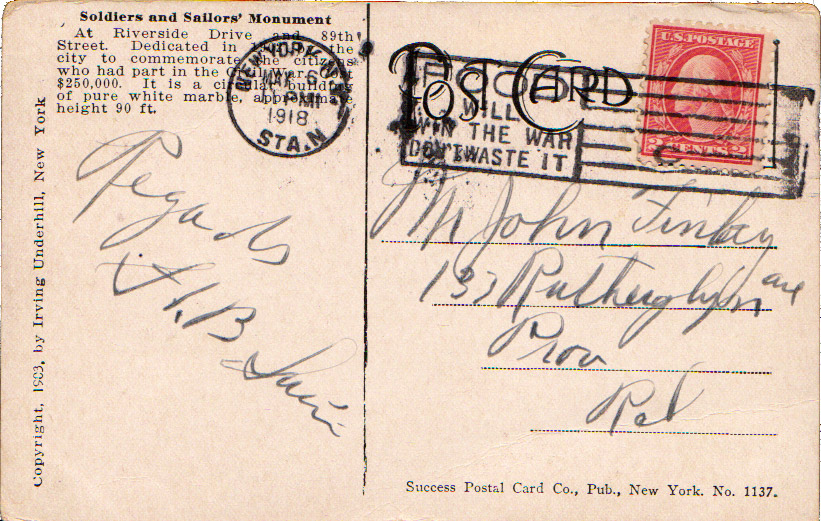 Soldiers and Sailors' Monument
At Riverside Drive and 89th
Street. Dedicated in by the
city to commemorate the citizens
who had part in the Civil War. Cost
$250,000. It is a circular building
of pure white marble, approximate
height 90 ft.
Copyright, 1903, by Irving Underhill, New York
NEW YORK
6
PM
1918
STA. N
POST CARD
FOOD
WILL
WIN THE WAR
DON'T WASTE IT
U.S. POSTAGE
2 CENTS 2
Regards
H.B.
Mr John Finley
137 Rutherglyn ave
Prov
Success Postal Card Co., Pub., New York. No. 1137.